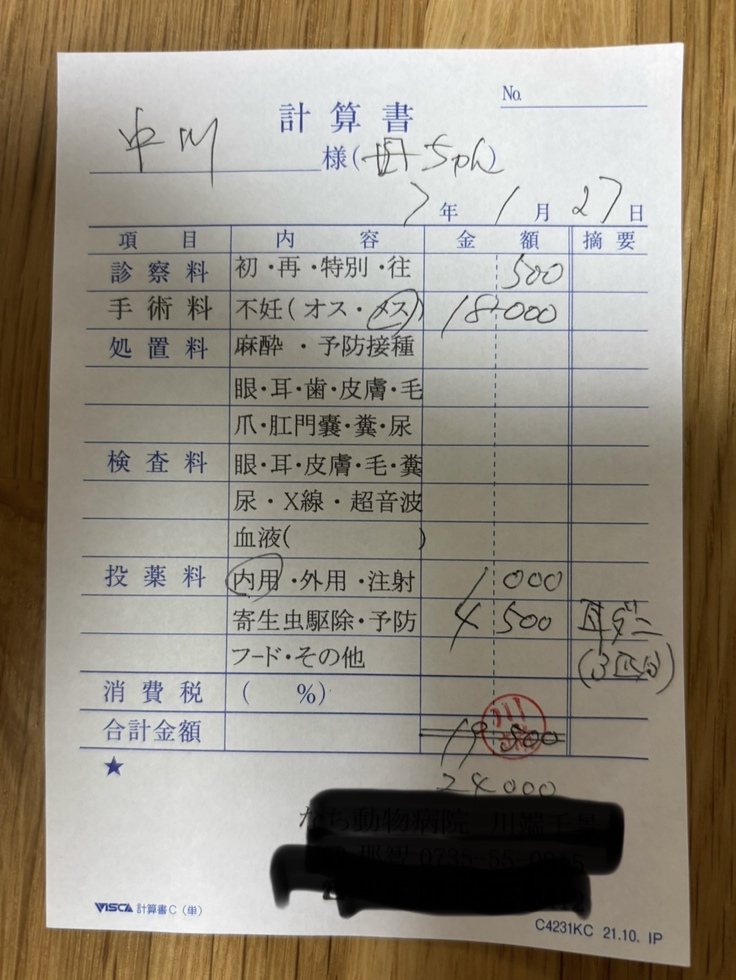 No.
計算書
中川 様(
7年 1月 27日
項目 内容 金額 摘要
診察料 初・再・特別・往 500
手術料 不妊(オス・メス) 18000
処置料 麻酔・予防接種
眼・耳・歯・皮膚・毛
爪・肛門嚢・糞・尿
検査料 眼・耳・皮膚・毛・糞
尿・X線・超音波
血液( )
投薬料 内用・外用・注射 1000
寄生虫駆除・予防 4500 耳ダニ
フード・その他 (3回分)
消費税 ( %)
合計金額 19500
★ 24000
動物病院
VISCA 計算書C(単)
C4231KC 21.10. IP